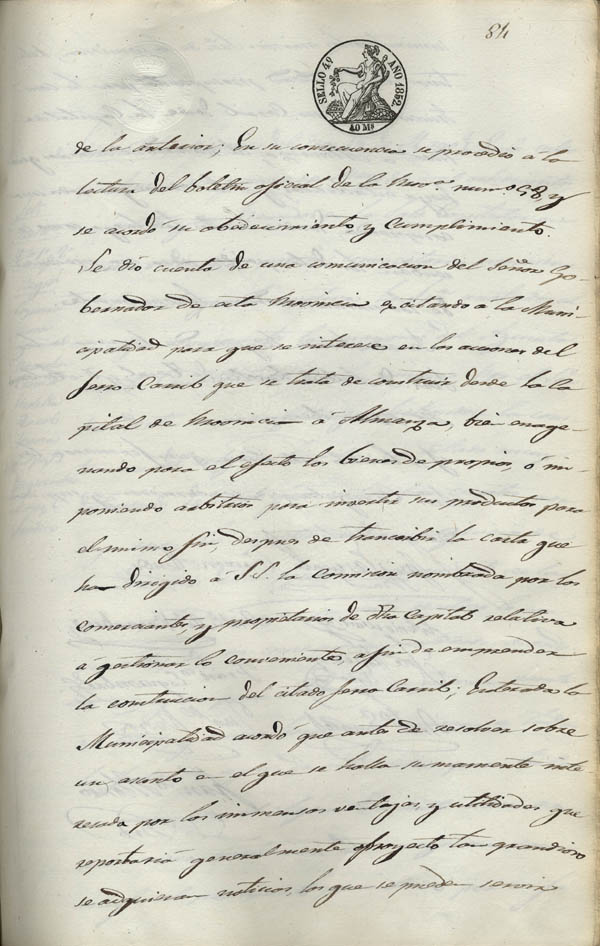 84
SELLO 4º AÑO 1852.
40 Ms
de la anterior; En su consecuencia se procedió á la
lectura del boletin oficial de la Provª. numº. 58, y
se acordó su obedecimiento y cumplimiento.
Se dió cuenta de una comunicacion del Señor Go-
bernador de esta Provincia escitando á la Muni-
cipalidad para que se interese en las acciones del
ferro Carril que se trata de construir desde la Ca
pital de Provincia á Almansa, bien enage-
nando para el efecto los bienes de propios, ó im-
poniendo arbitrios para invertir sus productos para
el mismo fin, despues de transcribir la carta que
ha dirigido á S.S. la Comision nombrada por los
comerciantes, y propietarios de dha Capital relativa
á gestionar lo conveniente, a fin de emprender
la construcion del citado ferro Carril; Enterada la
Municipalidad acordó que antes de resolver sobre
un asunto en el que se halla sumamente inte
resada por las inmensas ventajas, y utilidades que
reportaria generalmente proyecto tan grandioso
se adquieran noticias, los que se pueden servir